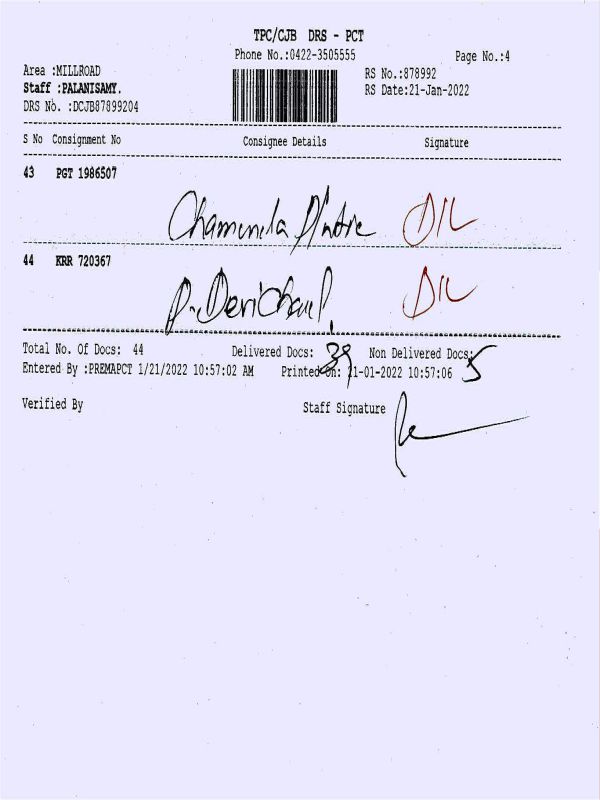 TPC/CJB DRS - PCT
Phone No.:0422-3505555
Page No.:4
Area :MILLROAD
RS No.:878992
Staff :PALANISAMY.
RS Date:21-Jan-2022
DRS No. :DCJB87899204
S No Consignment No Consignee Details Signature
43 PGT 1986507
D/L
44 KRR 720367
D/L
Total No. Of Docs: 44 Delivered Docs: 39 Non Delivered Docs: 5
Entered By :PREMAPCT 1/21/2022 10:57:02 AM Printed On: 21-01-2022 10:57:06
Verified By Staff Signature